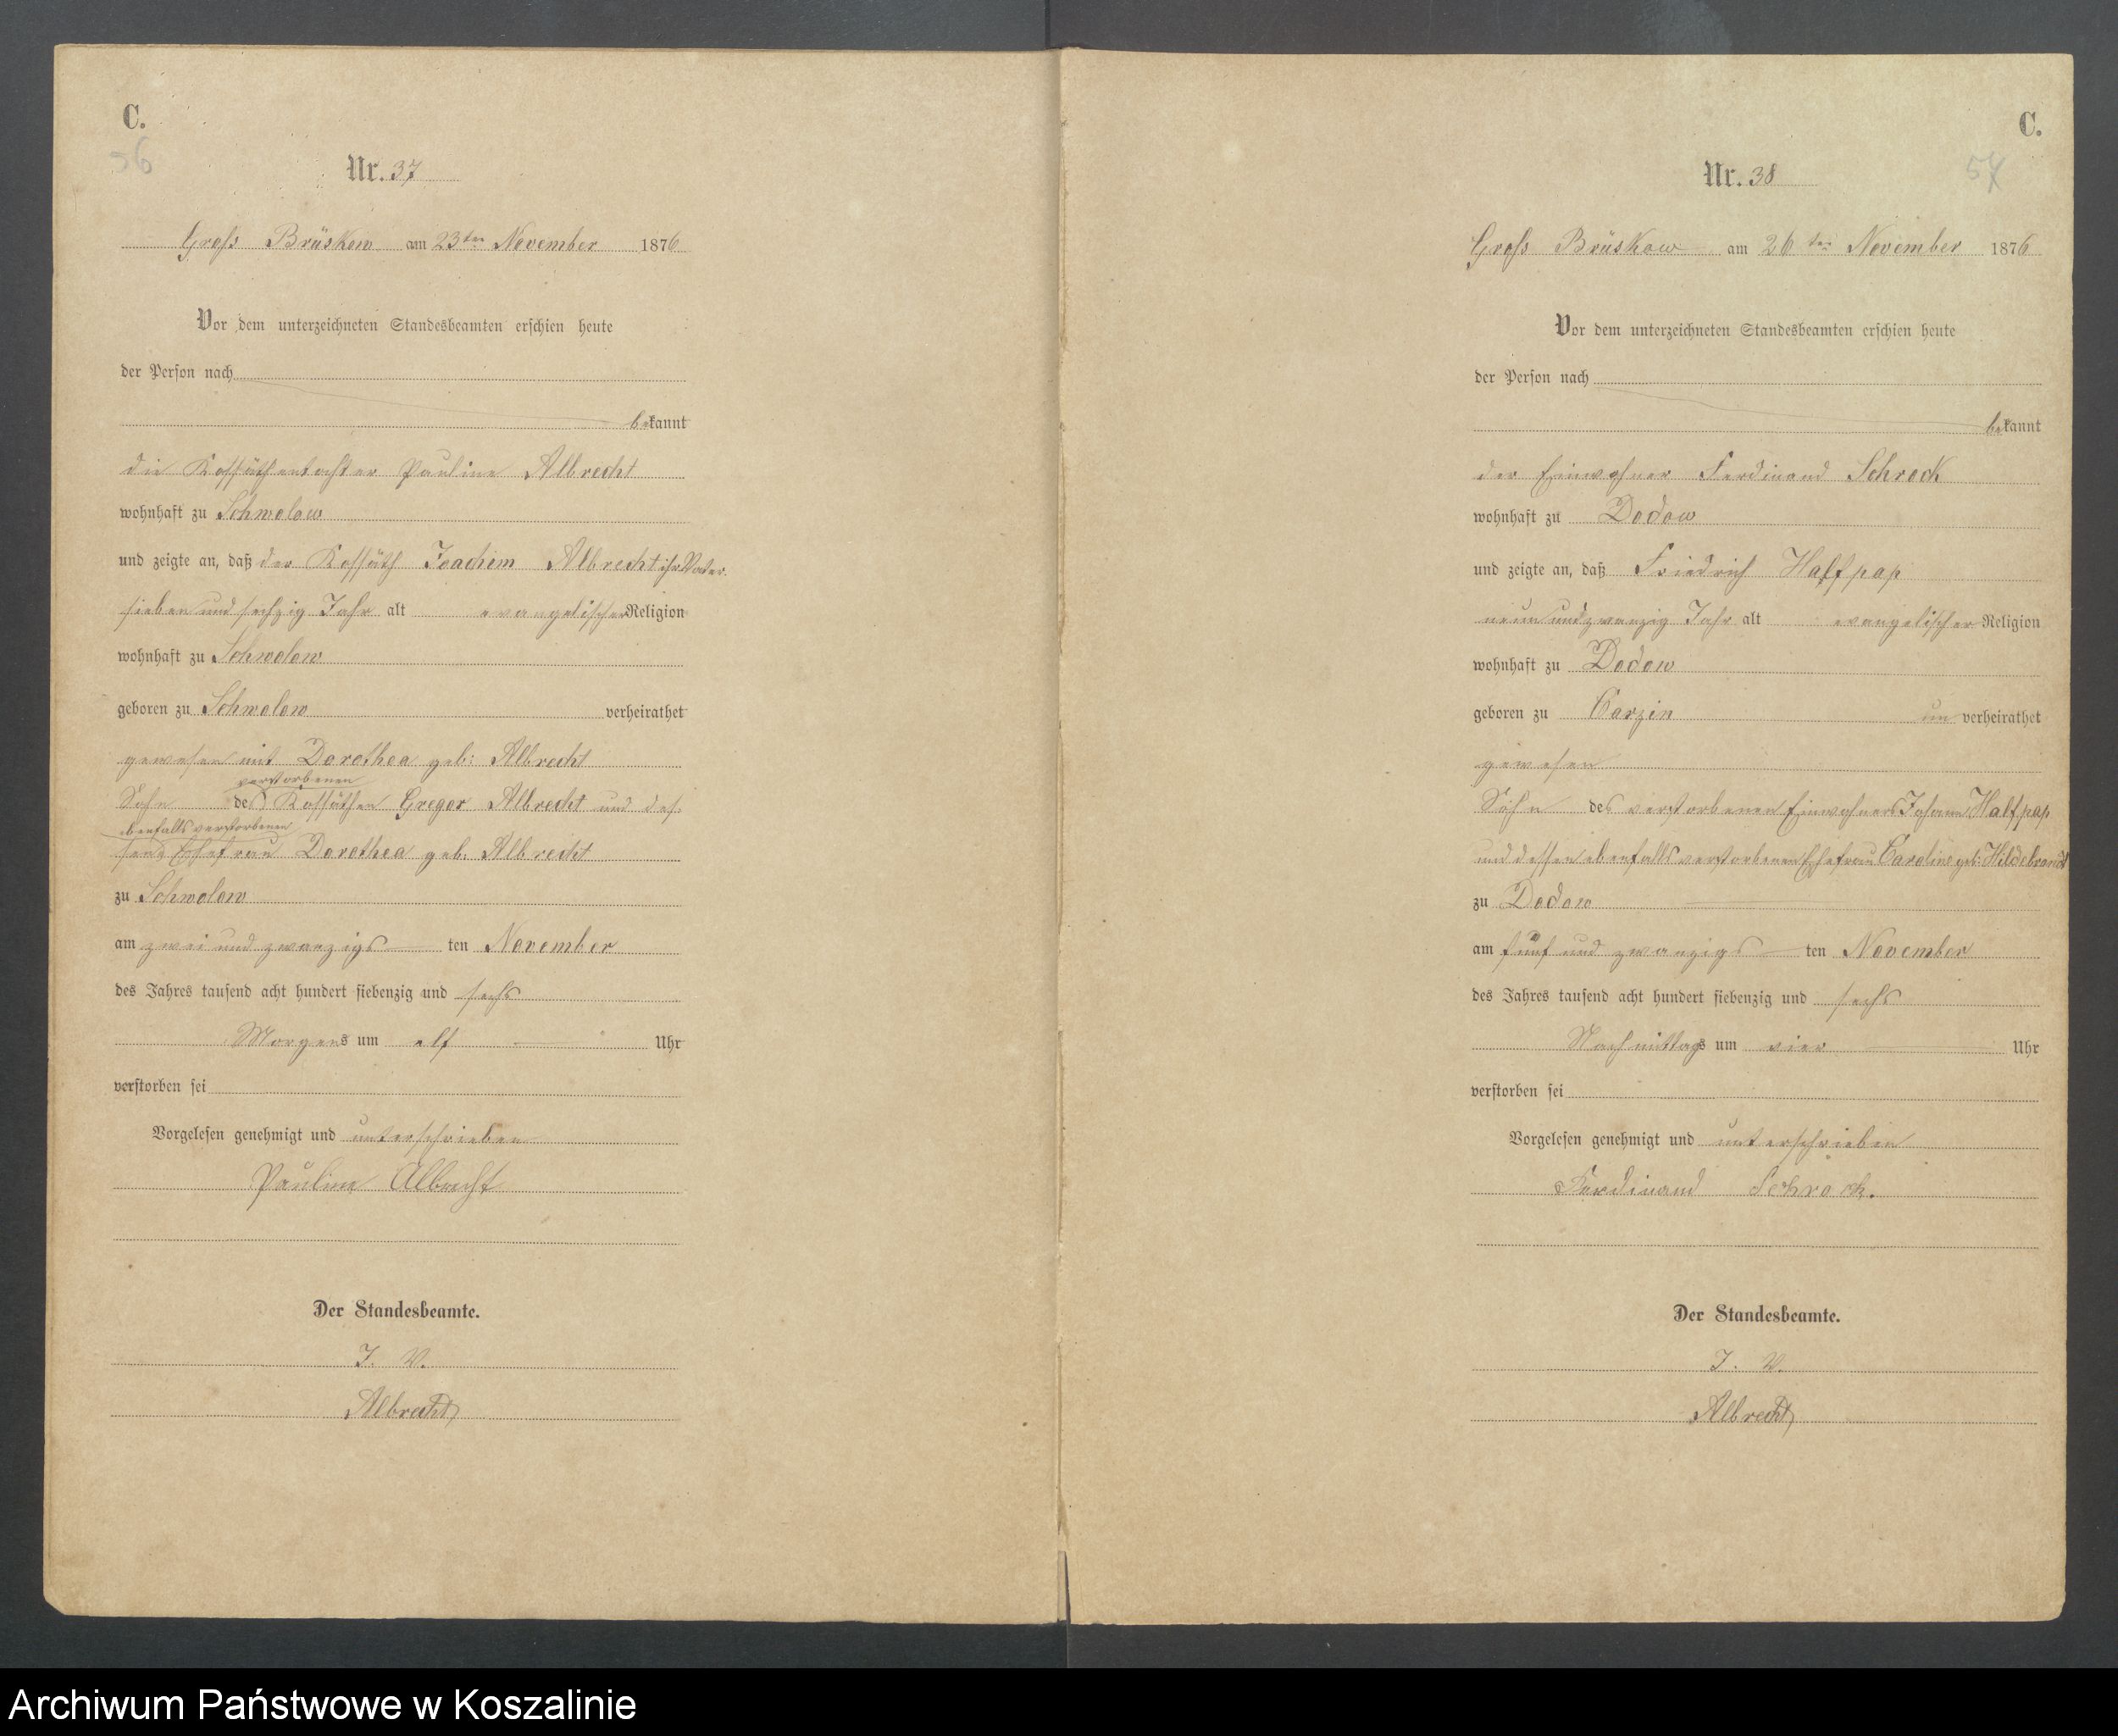 C.
56
Nr. 37
Groß Brüskow am 23ten November 1876
Vor dem unterzeichneten Standesbeamten erschien heute
der Person nach
bekannt
die Kossäthentochter Pauline Albrecht
wohnhaft zu Schwolow
und zeigte an, daß der Kossäth Joachim Albrecht ihr Vater.
sieben und sechzig Jahr alt evangelischer Religion
wohnhaft zu Schwolow
geboren zu Schwolow verheirathet
gewesen mit Dorothea geb: Albrecht
verstorbenen
Sohn des Kossäthen Gregor Albrecht und des
ebenfalls verstorbenen
sen Ehefrau Dorothea geb. Albrecht
zu Schwolow
am zwei und zwanzigs ten November
des Jahres tausend acht hundert siebenzig und sechs
Morgens um elf Uhr
verstorben sei
Vorgelesen genehmigt und unterschrieben
Pauline Albrecht
Der Standesbeamte.
J. V.
Albrecht
C.
57
Nr. 38
Groß Brüskow am 26ten November 1876
Vor dem unterzeichneten Standesbeamten erschien heute
der Person nach
bekannt
der Einwohner Ferdinand Schrock
wohnhaft zu Dodow
und zeigte an, daß Friedrich Halfpap
neun und zwanzig Jahr alt evangelischer Religion
wohnhaft zu Dodow
geboren zu Carzin un verheirathet
gewesen
Sohn des verstorbenen Einwohners Johann Halfpap
und dessen ebenfalls verstorbenen Ehefrau Caroline geb. Hildebrandt
zu Dodow
am fünf und zwanzigs ten November
des Jahres tausend acht hundert siebenzig und sechs
Nachmittags um vier Uhr
verstorben sei
Vorgelesen genehmigt und unterschrieben
Ferdinand Schrock.
Der Standesbeamte.
J. V.
Albrecht
Archiwum Państwowe w Koszalinie